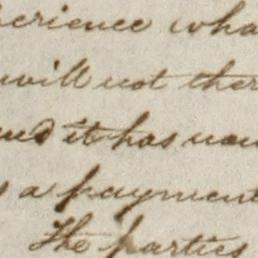 perience wha
will not ther
and it has now
s a payment
The parties